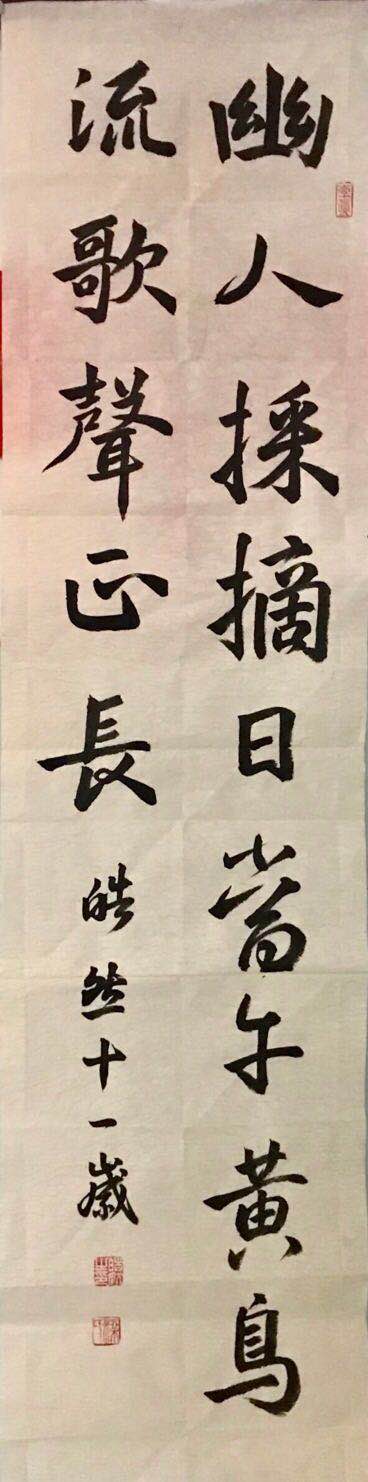 幽人採摘日當午黃鳥
流歌聲正長 皓然十一歲